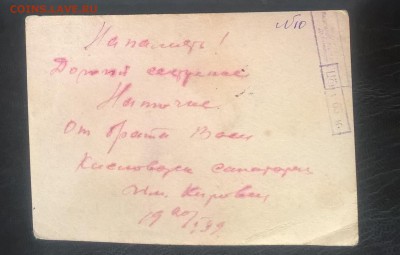 COINS.LAVE.RU
№10
На память!
Дорогой сестренке
От брата Васи
Кисловодск санатории
Им. Кирова
19 20/ 39